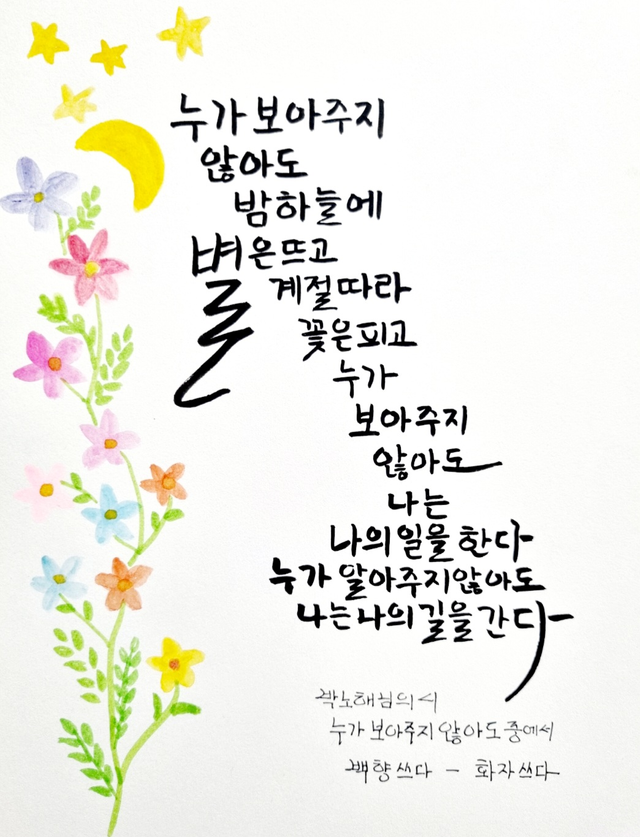 누가 보아주지
않아도
밤하늘에
별은 뜨고
계절따라
꽃은 피고
누가
보아주지
않아도
나는
나의 일을 한다
누가 알아주지 않아도
나는 나의 길을 간다
박노해님의 시
누가 보아주지 않아도 중에서
백향 쓰다 - 화자 쓰다